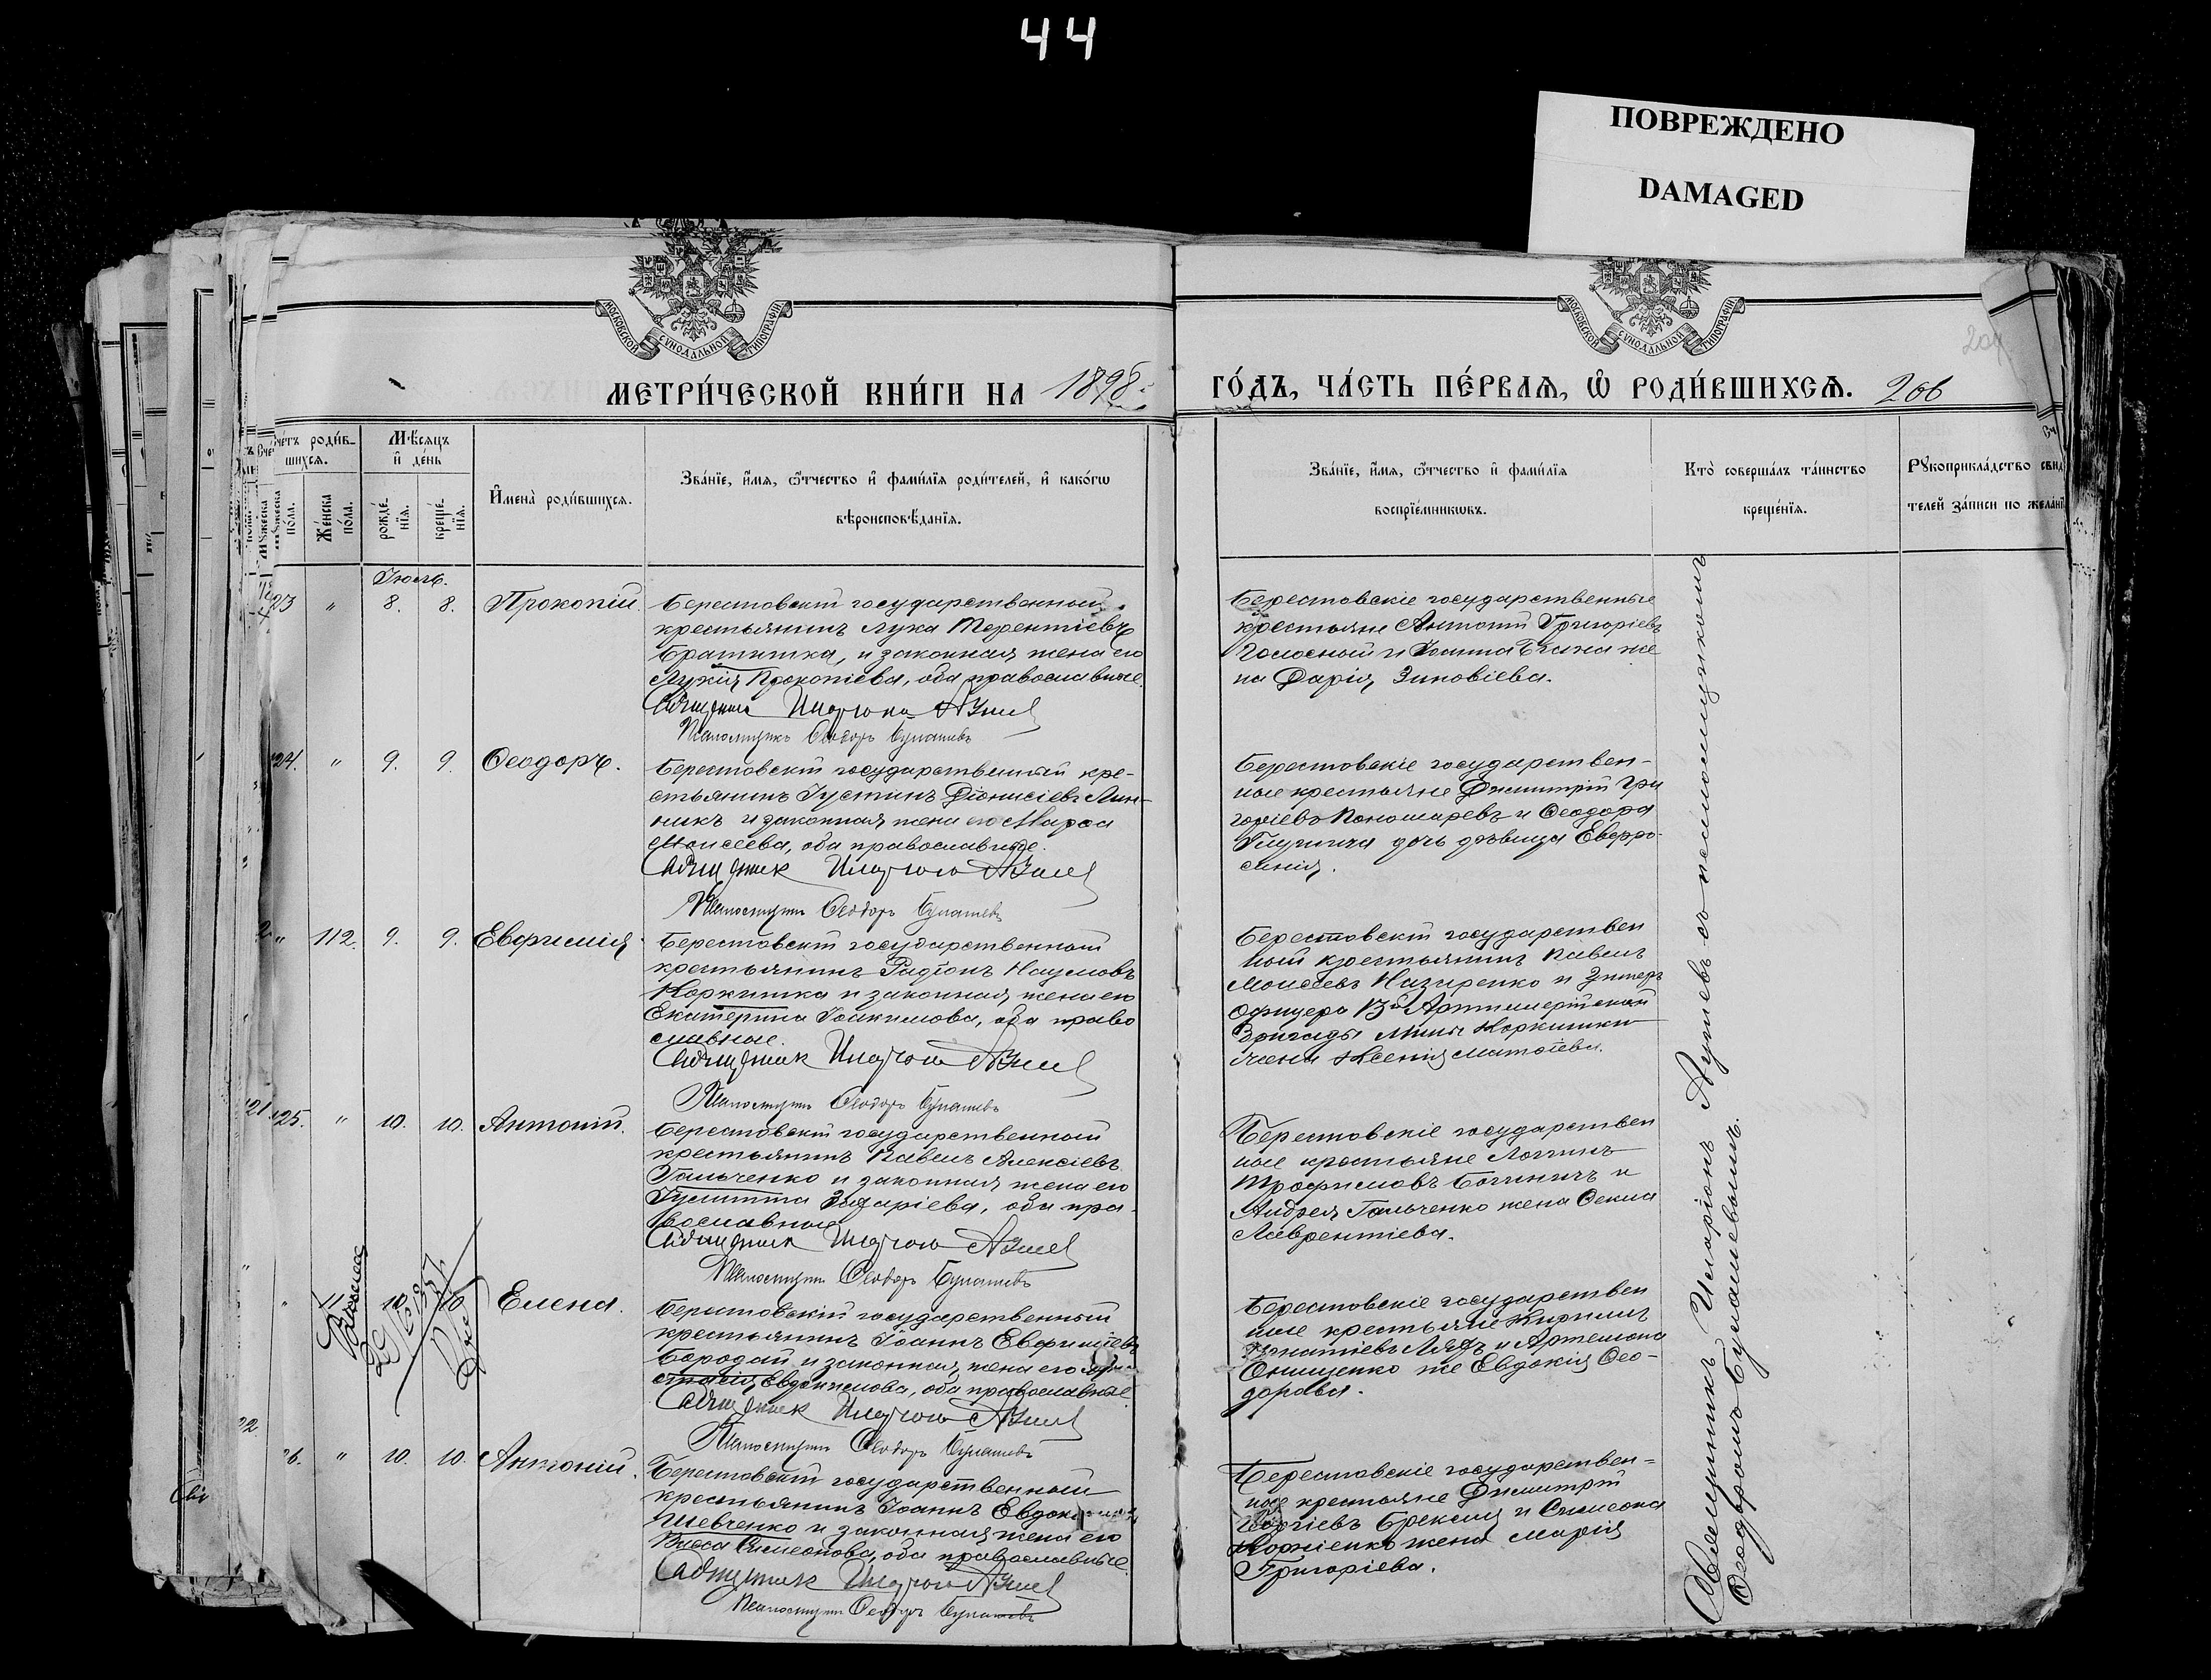 44
ПОВРЕЖДЕНО
DAMAGED
МОСКОВСКОЙ СѴНОДАЛЬНОЙ ТИПОГРАФІИ
МОСКОВСКОЙ СѴНОДАЛЬНОЙ ТИПОГРАФІИ
МЕТРИ́ЧЕСКОЙ КНИ́ГИ НА 1898
ГО́ДЪ, ЧА́СТЬ ПЕ́РВАЯ, Ѡ РОДИ́ВШИХСЯ. 206
204
роди́в-
шихся.
Мѣсяцъ
и҆ де́нь
Мꙋжеска по́ла.
Же́нска по́ла.
рожде́-
нїя.
креще́-
нїя.
И҆мена̀ роди́вшихся.
Зва́нїе, и҆́мя, ѻ҆́тчество и҆ фами́лїя роди́телей, и҆ како́гѡ
вѣроисповѣ́данїя.
Зва́нїе, и҆́мя, ѻ҆́тчество и҆ фами́лїя
воспрїе́мникѡвъ.
Кто̀ соверша́лъ та́инство
креще́нїя.
Рꙋкоприкла́дство свид
телей за́писи по жела́нї
Іюль.
23 " 8. 8. Прокопій.
Берестовскій государственный
крестьянинъ Лука Терентіевъ
Братишка, и законная жена его
Лукія Прокопіева, оба православные.
Священникъ Иларіонъ
Псаломщикъ Ѳеодоръ Булашевъ
Берестовскіе государственные
крестьяне Антоній Григоріевъ
Голосный и
на Дарія Зиновіева.
124. " 9. 9. Ѳеодоръ.
Берестовскій государственный кре-
стьянинъ Іустинъ Діонисіевъ Лин-
никъ и законная жена его Марѳа
Моисеева, оба православные.
Священникъ Иларіонъ
Псаломщикъ Ѳеодоръ Булашевъ
Берестовскіе государствен-
ные крестьяне Димитрій Гри
горіевъ Пономаревъ и Ѳеодора
дочь дѣвица Евфро-
синія.
" 112. 9. 9. Евфимія
Берестовскій государственный
крестьянинъ Родіонъ Наумовъ
Коркишка и законная жена его
Екатерина Іоакимова, оба право
славные.
Священникъ Иларіонъ
Псаломщикъ Ѳеодоръ Булашевъ
Берестовскій государствен
ный крестьянинъ Павелъ
Моисеевъ Назаренко и Унтеръ
офицера 13й Артиллерійской
бригады Коркишки
жена Ксенія
125. " 10. 10. Антоній.
Берестовскій государственный
крестьянинъ Павелъ Алексіевъ
Гальченко и законная жена его
Іулитта Захаріева, оба пра-
вославные
Священникъ Иларіонъ
Псаломщикъ Ѳеодоръ Булашевъ
Берестовскіе государствен
ные крестьяне Логгинъ
Трофимовъ и
Андрея Гальченко жена Ѳекла
Лаврентіева.
" 10 10 Елена.
Берестовскій государственный
крестьянинъ Іоаннъ Евфиміевъ
Бородай и законная жена его
Евдокимова, оба православные
Священникъ Иларіонъ
Псаломщикъ Ѳеодоръ Булашевъ
Берестовскіе государствен
ные крестьяне Кириллъ
Игнатіевъ и Артемона
Онищенко же Евдокія Ѳео-
дорова.
26. " 10. 10. Антоній.
Берестовскій государственный
крестьянинъ Іоаннъ
Шевченко и законная жена его
Васса Симеонова, оба православные
Священникъ Иларіонъ
Псаломщикъ Ѳеодоръ Булашевъ
Берестовскіе государствен-
ные крестьяне Димитрій
Георгіевъ и Симеона
Корніенко жена Марія
Григоріева.
Священникъ Иларіонъ съ псаломщикомъ
Ѳеодоромъ Булашевымъ.